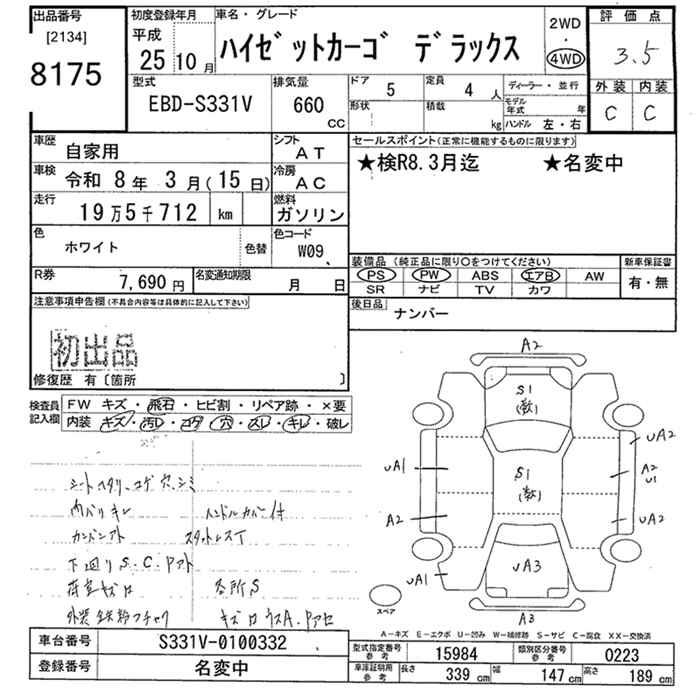 出品番号
[2134]
8175
初度登録年月
平成
25 10月
車名・グレード
ハイゼットカーゴ デラックス
2WD
・
4WD
評価点
3.5
外装 内装
C C
型式
EBD-S331V
排気量
660
CC
ドア 5
定員 4 人
形状
積載 kg
ディーラー・並行
モデル年式 年
ハンドル 左・右
車歴 自家用
シフト AT
車検 令和 8年 3月(15日)
冷房 AC
走行 19万5千712 km
燃料 ガソリン
色 ホワイト
色替
色コード W09、
R券 7,690円
名変通知期限 月 日
セールスポイント(正常に機能するものに限ります)
★検R8.3月迄 ★名変中
装備品 (純正品に限り○をつけてください)
PS PW ABS エアB AW
SR ナビ TV カワ
新車保証書
有・無
後日品
ナンバー
注意事項申告欄(不具合内容等は具体的に記入して下さい)
初出品
修復歴 有〔箇所 〕
検査員記入欄
FW キズ・飛石・ヒビ割・リペア跡・×要
内装 キズ・汚レ・コゲ・穴・スレ・キレ・破レ
シートヘタリ、コゲ穴、シミ
内バリキレ ハンドルカバー付
スタットレスT
下廻りS、C、Pアト
荷室キズ□ 各所S
外装鉄粉フチャク
A2
S1
(数)
UA1
UA2
S1
(数)
A2
U1
A2
UA2
UA1
UA3
A3
スペア
A-キズ E-エクボ U-凹み W-補修跡 S-サビ C-腐食 XX-交換済
車台番号 S331V-0100332
登録番号 名変中
型式指定番号 参考 15984
類別区分番号 参考 0223
車庫証明用 参考 長さ 339 cm 幅 147 cm 高さ 189 cm